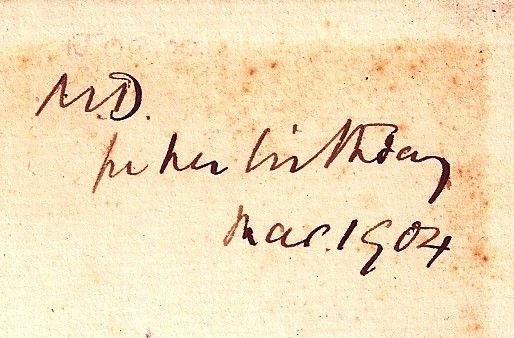 M.D.
for her birthday
Mar. 1904